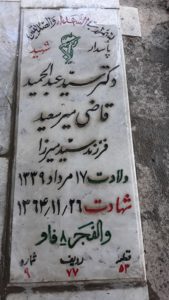 پاسدار شهید
دکتر سید عبدالحمید
قاضی میرسعید
فرزند سید میرزا
ولادت ۱۷ مرداد ۱۳۳۹
شهادت ۱۳۶۴/۱۱/۲۶
والفجر ۸ فاو
قطعه ردیف شماره
۵۳ ۷۷ ۹